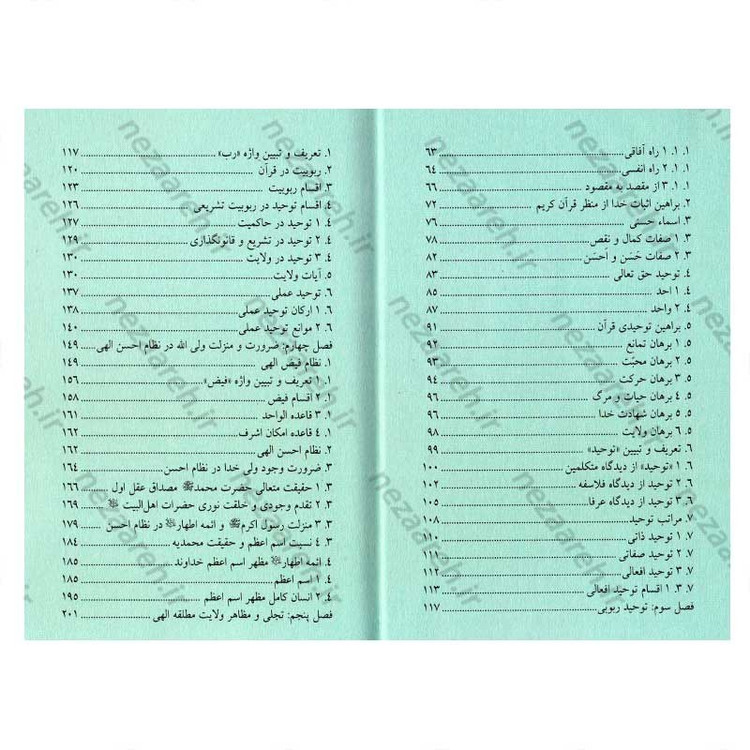 ۱. ۱. ۱ راه آفاقی ........ ۶۳
۱. ۱. ۲ راه انفسی ........ ۶۴
۱. ۱. ۳ از مقصد به مقصود ........ ۶۶
۲. براهین اثبات خدا از منظر قرآن کریم ........ ۷۲
۳. اسماء حسنی ........ ۷۶
۳. ۱ صفات کمال و نقص ........ ۷۸
۳. ۲ صفات حَسَن و أحسَن ........ ۸۲
۴. توحید حق تعالی ........ ۸۳
۴. ۱ احد ........ ۸۵
۴. ۲ واحد ........ ۸۷
۵. براهین توحیدی قرآن ........ ۹۱
۵. ۱ برهان تمانع ........ ۹۲
۵. ۲ برهان محبّت ........ ۹۳
۵. ۳ برهان حرکت ........ ۹۴
۵. ۴ برهان حیات و مرگ ........ ۹۶
۵. ۵ برهان شهادت خدا ........ ۹۶
۵. ۶ برهان ولایت ........ ۹۸
۶. تعریف و تبیین «توحید» ........ ۹۹
۶. ۱ «توحید» از دیدگاه متکلمین ........ ۱۰۰
۶. ۲ توحید از دیدگاه فلاسفه ........ ۱۰۲
۶. ۳ توحید از دیدگاه عرفا ........ ۱۰۵
۷. مراتب توحید ........ ۱۰۸
۷. ۱ توحید ذاتی ........ ۱۱۰
۷. ۲ توحید صفاتی ........ ۱۱۱
۷. ۳ توحید افعالی ........ ۱۱۲
۷. ۳. ۱ اقسام توحید افعالی ........ ۱۱۳
فصل سوم: توحید ربوبی ........ ۱۱۷
۱. تعریف و تبیین واژه «رب» ........ ۱۱۷
۲. ربوبیت در قرآن ........ ۱۲۰
۳. اقسام ربوبیت ........ ۱۲۳
۴. اقسام توحید در ربوبیت تشریعی ........ ۱۲۶
۴. ۱ توحید در حاکمیت ........ ۱۲۷
۴. ۲ توحید در تشریع و قانونگذاری ........ ۱۲۹
۴. ۳ توحید در ولایت ........ ۱۳۰
۵. آیات ولایت ........ ۱۳۰
۶. توحید عملی ........ ۱۳۷
۶. ۱ ارکان توحید عملی ........ ۱۳۸
۶. ۲ موانع توحید عملی ........ ۱۴۰
فصل چهارم: ضرورت و منزلت ولی الله در نظام احسن الهی ........ ۱۴۹
۱. نظام فیض الهی ........ ۱۴۹
۱. ۱ تعریف و تبیین واژه «فیض» ........ ۱۵۶
۱. ۲ اقسام فیض ........ ۱۵۸
۱. ۳ قاعده الواحد ........ ۱۶۱
۱. ۴ قاعده امکان اشرف ........ ۱۶۲
۲. نظام احسن الهی ........ ۱۶۲
۳. ضرورت وجود ولی خدا در نظام احسن ........ ۱۶۴
۳. ۱ حقیقت متعالی حضرت محمدﷺ مصداق عقل اول ........ ۱۶۶
۳. ۲ تقدم وجودی و خلقت نوری حضرات اهل‌البیت ........ ۱۶۹
۳. ۳ منزلت رسول اکرمﷺ و ائمه اطهار در نظام احسن ........ ۱۷۹
۳. ۴ نسبت اسم اعظم و حقیقت محمدیه ........ ۱۸۴
۴. ائمه اطهار مظهر اسم اعظم خداوند ........ ۱۸۵
۴. ۱ اسم اعظم ........ ۱۸۵
۴. ۲ انسان کامل مظهر اسم اعظم ........ ۱۹۵
فصل پنجم: تجلی و مظاهر ولایت مطلقه الهی ........ ۲۰۱
nezaareh.ir